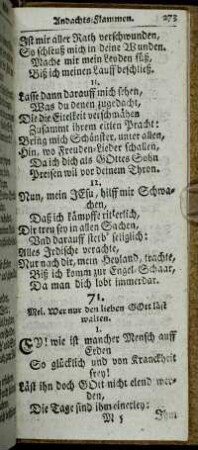 Andachts-Flammen. 273
Ist mir aller Rath verschwunden,
So schleuß mich in deine Wunden,
Mache mir mein Leyden süß,
Biß ich meinen Lauff beschließ.
11.
Lasse dann darauff mich sehen,
Was du denen zugedacht,
Die die Eitelkeit verschmähen
Zusammt ihrem eitlen Pracht:
Bring mich Schönster, unter allen,
Hin, wo Freuden-Lieder schallen,
Da ich dich als GOttes Sohn
Preisen wil vor deinem Thron.
12.
Nun, mein JEsu, hilff mir Schwa-
chen,
Daß ich kämpffe ritterlich,
Dir treu sey in allen Sachen,
Und darauff sterb' seliglich:
Alles Irdische verachte,
Nur nach dir, mein Heyland, trachte,
Biß ich komm zur Engel-Schaar,
Da man dich lobt immerdar.
71.
Mel. Wer nur den lieben GOtt läst
walten.
1.
EY! wie ist mancher Mensch auff
Erden
So glücklich und von Kranckheit
frey!
Läst ihn doch GOtt nicht elend wer-
den,
Die Tage sind ihm einerley:
M 5